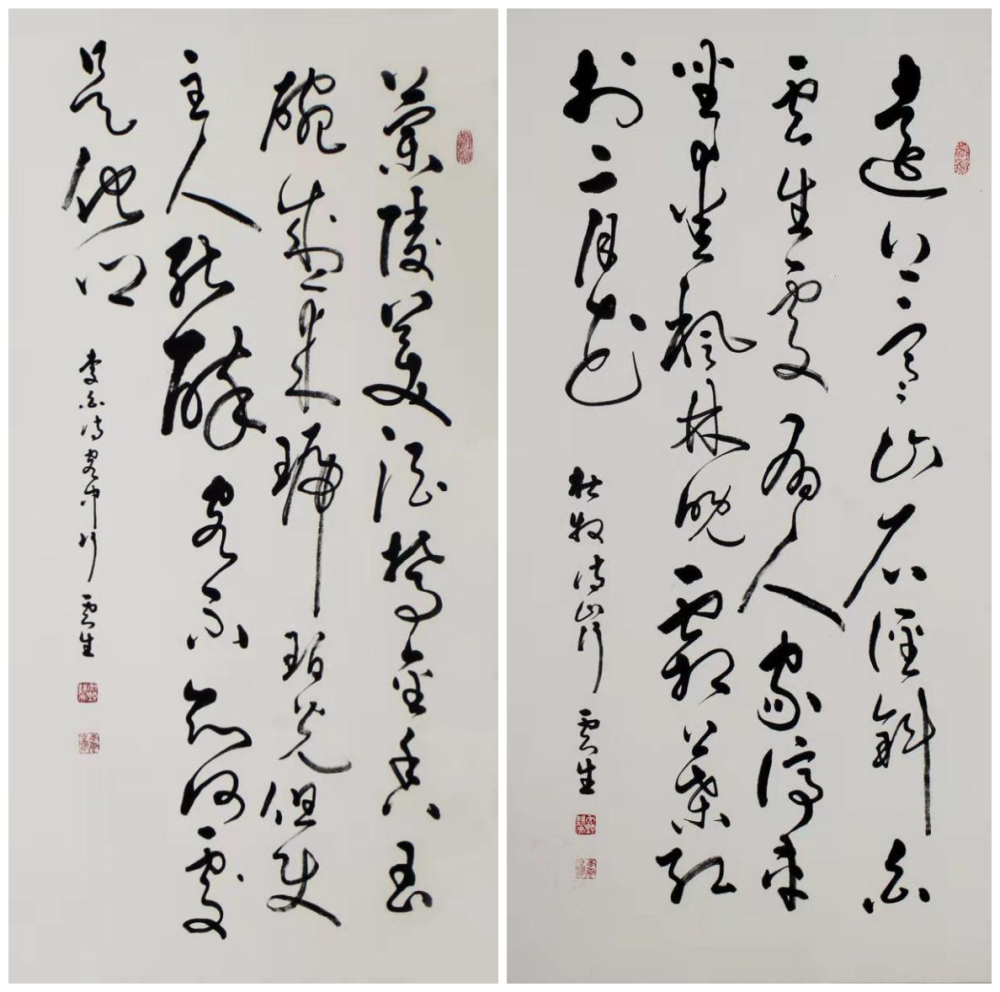 遠上寒山石徑斜白
雲生處有人家停車
坐愛楓林晚霜葉紅
於二月花
杜牧詩山行 雲生
蘭陵美酒鬱金香玉
碗盛來琥珀光但使
主人能醉客不知何處
是他鄉
李白詩客中行 雲生